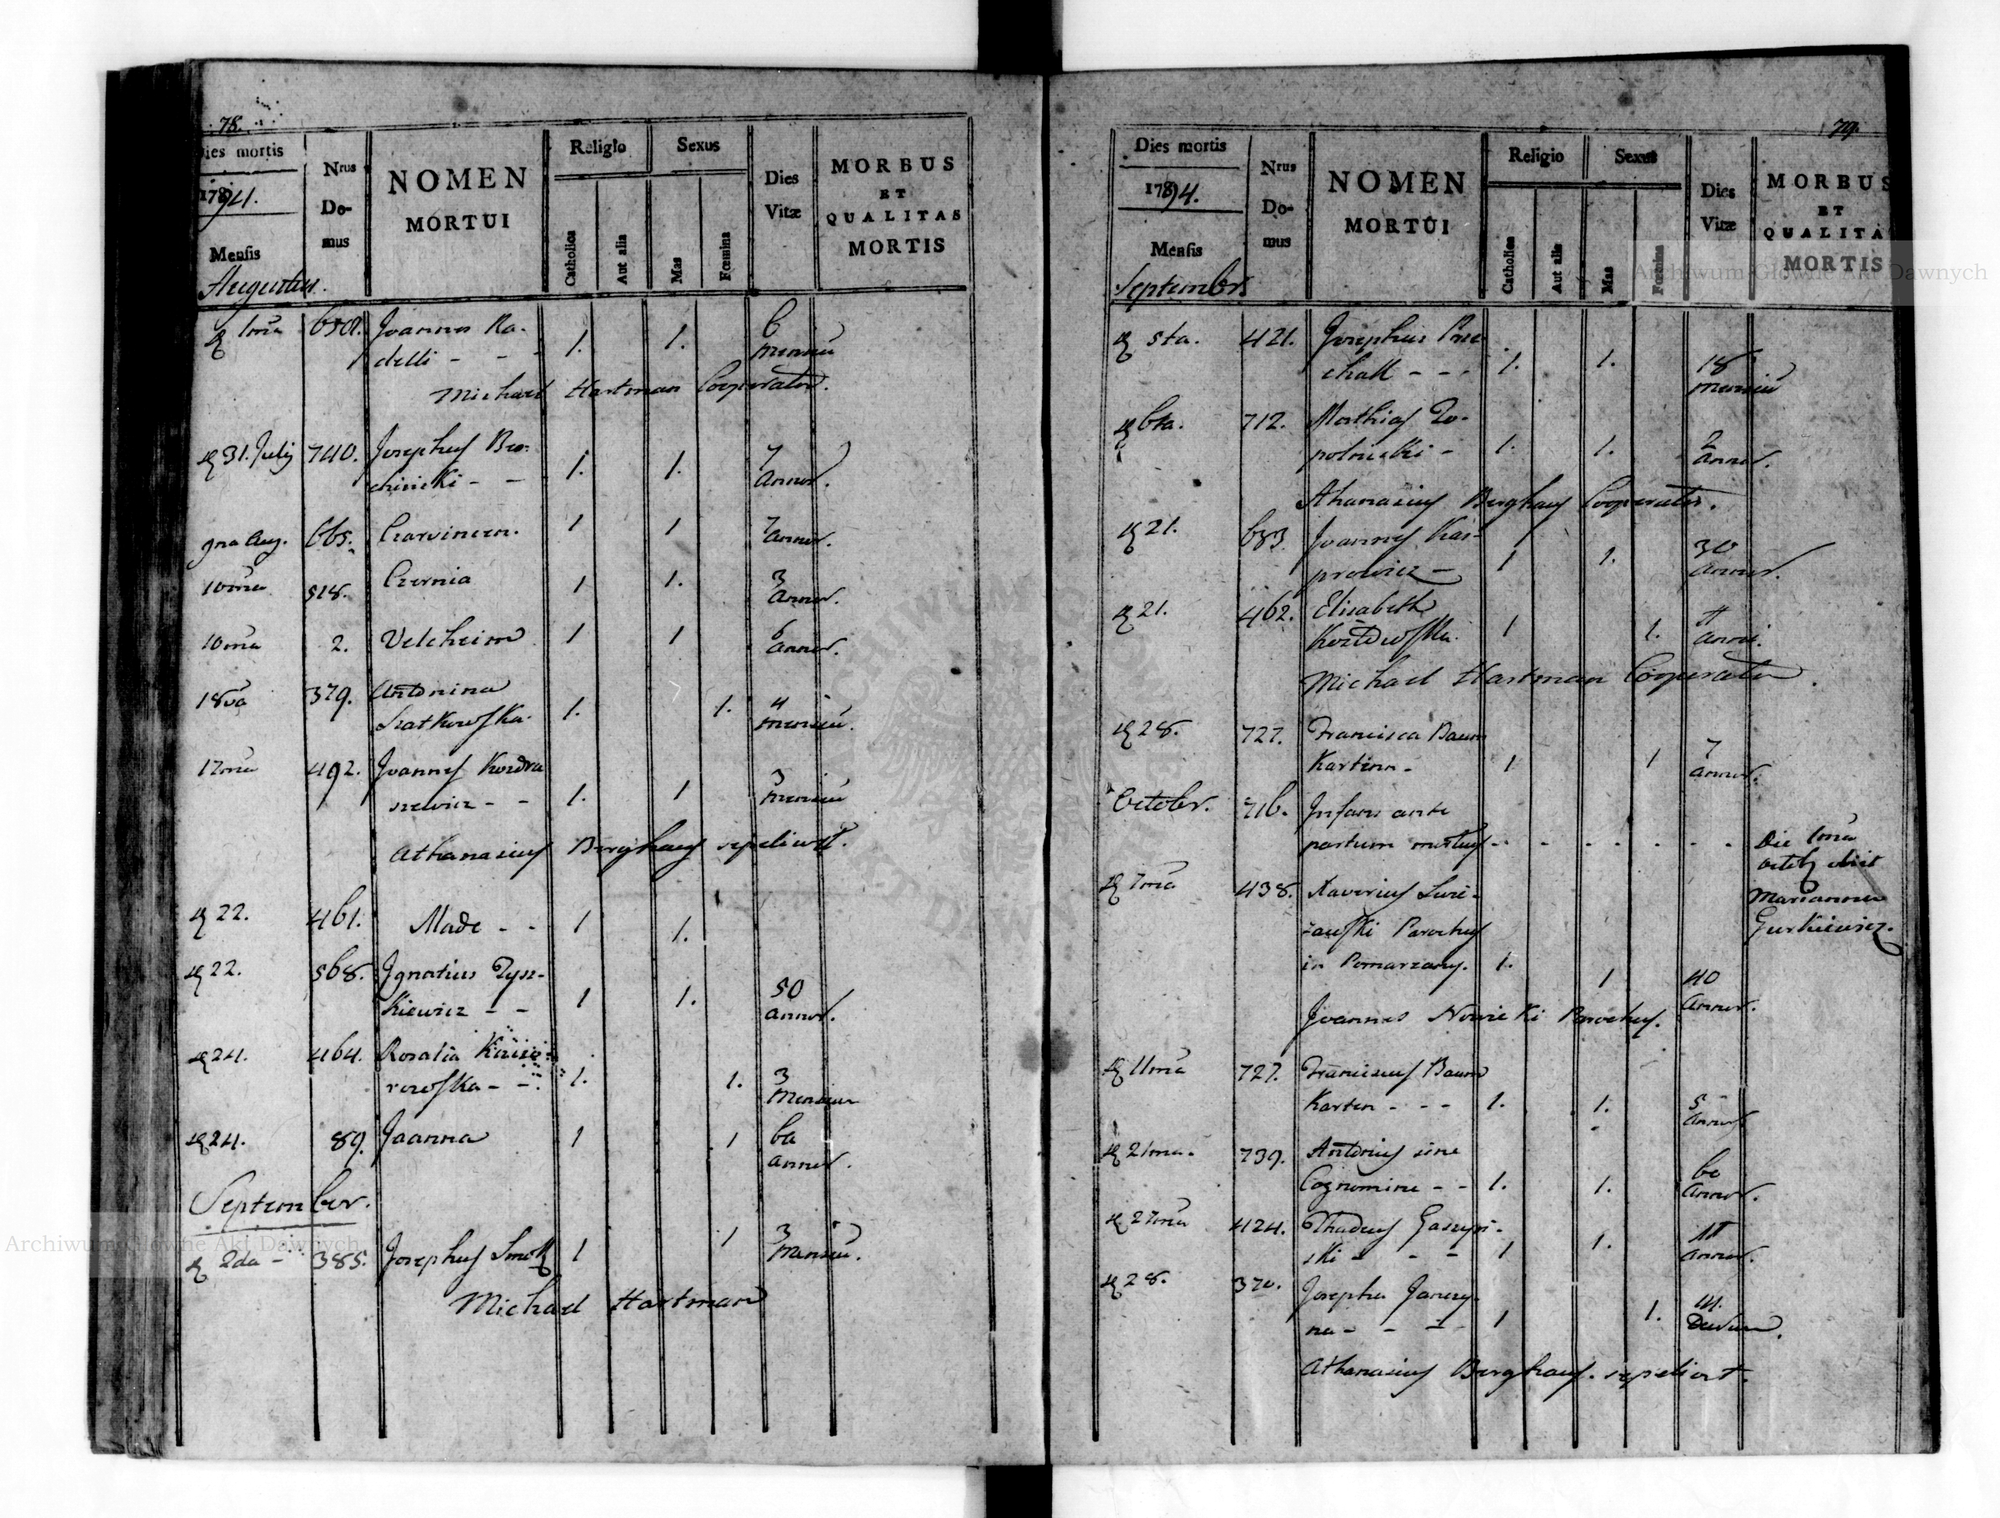 78.
Dies mortis
1794.
Mensis
Augustus.
Nrus
Do-
mus
NOMEN
MORTUI
Religio
Catholica
Aut alia
Sexus
Mas
Fœmina
Dies
Vitæ
MORBUS
ET
QUALITAS
MORTIS
Joannes Ra-
delli - - - 1. 1. 6
Michael Hartman Cooperator.
31. Julij 740. Josephus
- - 1. 1. 7
annor.
9na Aug. 665. 1 1 7
annor.
10ma 518. Czernia 1 1. 3
annor.
10ma 2. Velcheim 1 1 6
annor.
18va 379. Antonina
Szatkowska. 1. 1. 4
mensiu.
17ma 492. Joannes Kondra
szewicz - - 1. 1 3
mensiu
Athanasius Berghaus sepelivit.
22. 461. Made - - 1 1.
22. 568. Ignatius Tysz-
kiewicz - - 1 1. 50
annor.
24. 464. Rosalia
rowska - - 1. 1. 3
Mensiu
24. 89. Joanna 1 1 60
annor.
September.
2da - 385. Josephus 1 1 3
mensiu.
Michael Hartman
79.
Dies mortis
1794.
Mensis
Septembris
Nrus
Do-
mus
NOMEN
MORTUI
Religio
Catholica
Aut alia
Sexus
Mas
Fœmina
Dies
Vitæ
MORBUS
ET
QUALITA
MORTIS
5ta. 421. Josephus
chall - - - 1. 1. 18
mensiu
6ta. 712. Mathias To-
polnicki - 1. 1. 2
annor.
Athanasius Berghaus Cooperator.
21. 683. Joannes Kas-
prowicz - 1 1. 30
annor.
21. 462. Elisabeth
1 1.
Michael Hartman Cooperator.
28. 727. Francisca Baum
Kartenn - 1 1 7
annor.
Octobr. 716. Infans ante
partum mortus - - - - - - Die 1ma
octob obiit
Marianna
Gurkiewicz.
7ma 438. Xaverius
Parochus
in Pomarzany. 1. 1 40
annor.
Joannes Nowicki Parochus.
11ma 727. Franciscus Baum
Karten - - - 1. 1. 5
annor
21ma. 739. Antonius sine
Cognomine - - 1. 1. 60
annor.
27ma 424. Thadeus Gaszyn-
ski - - - 1 1.
annor.
28. 370. Josepha
na - - - 1 1. 14.
Dierum.
Athanasius Berghaus. sepelivit.
Archiwum Główne Akt Dawnych
Archiwum Główne Akt Dawnych